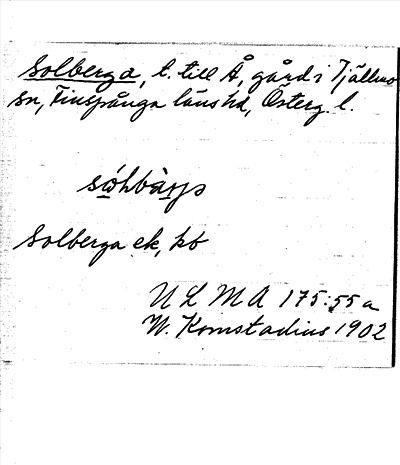 Solberga, t. till Å, gård i Tjällmo
sn, Finspånga läns hd, Österg. l.
Solberga ek, kb
ULMA 175:55a
W. Komstadius 1902